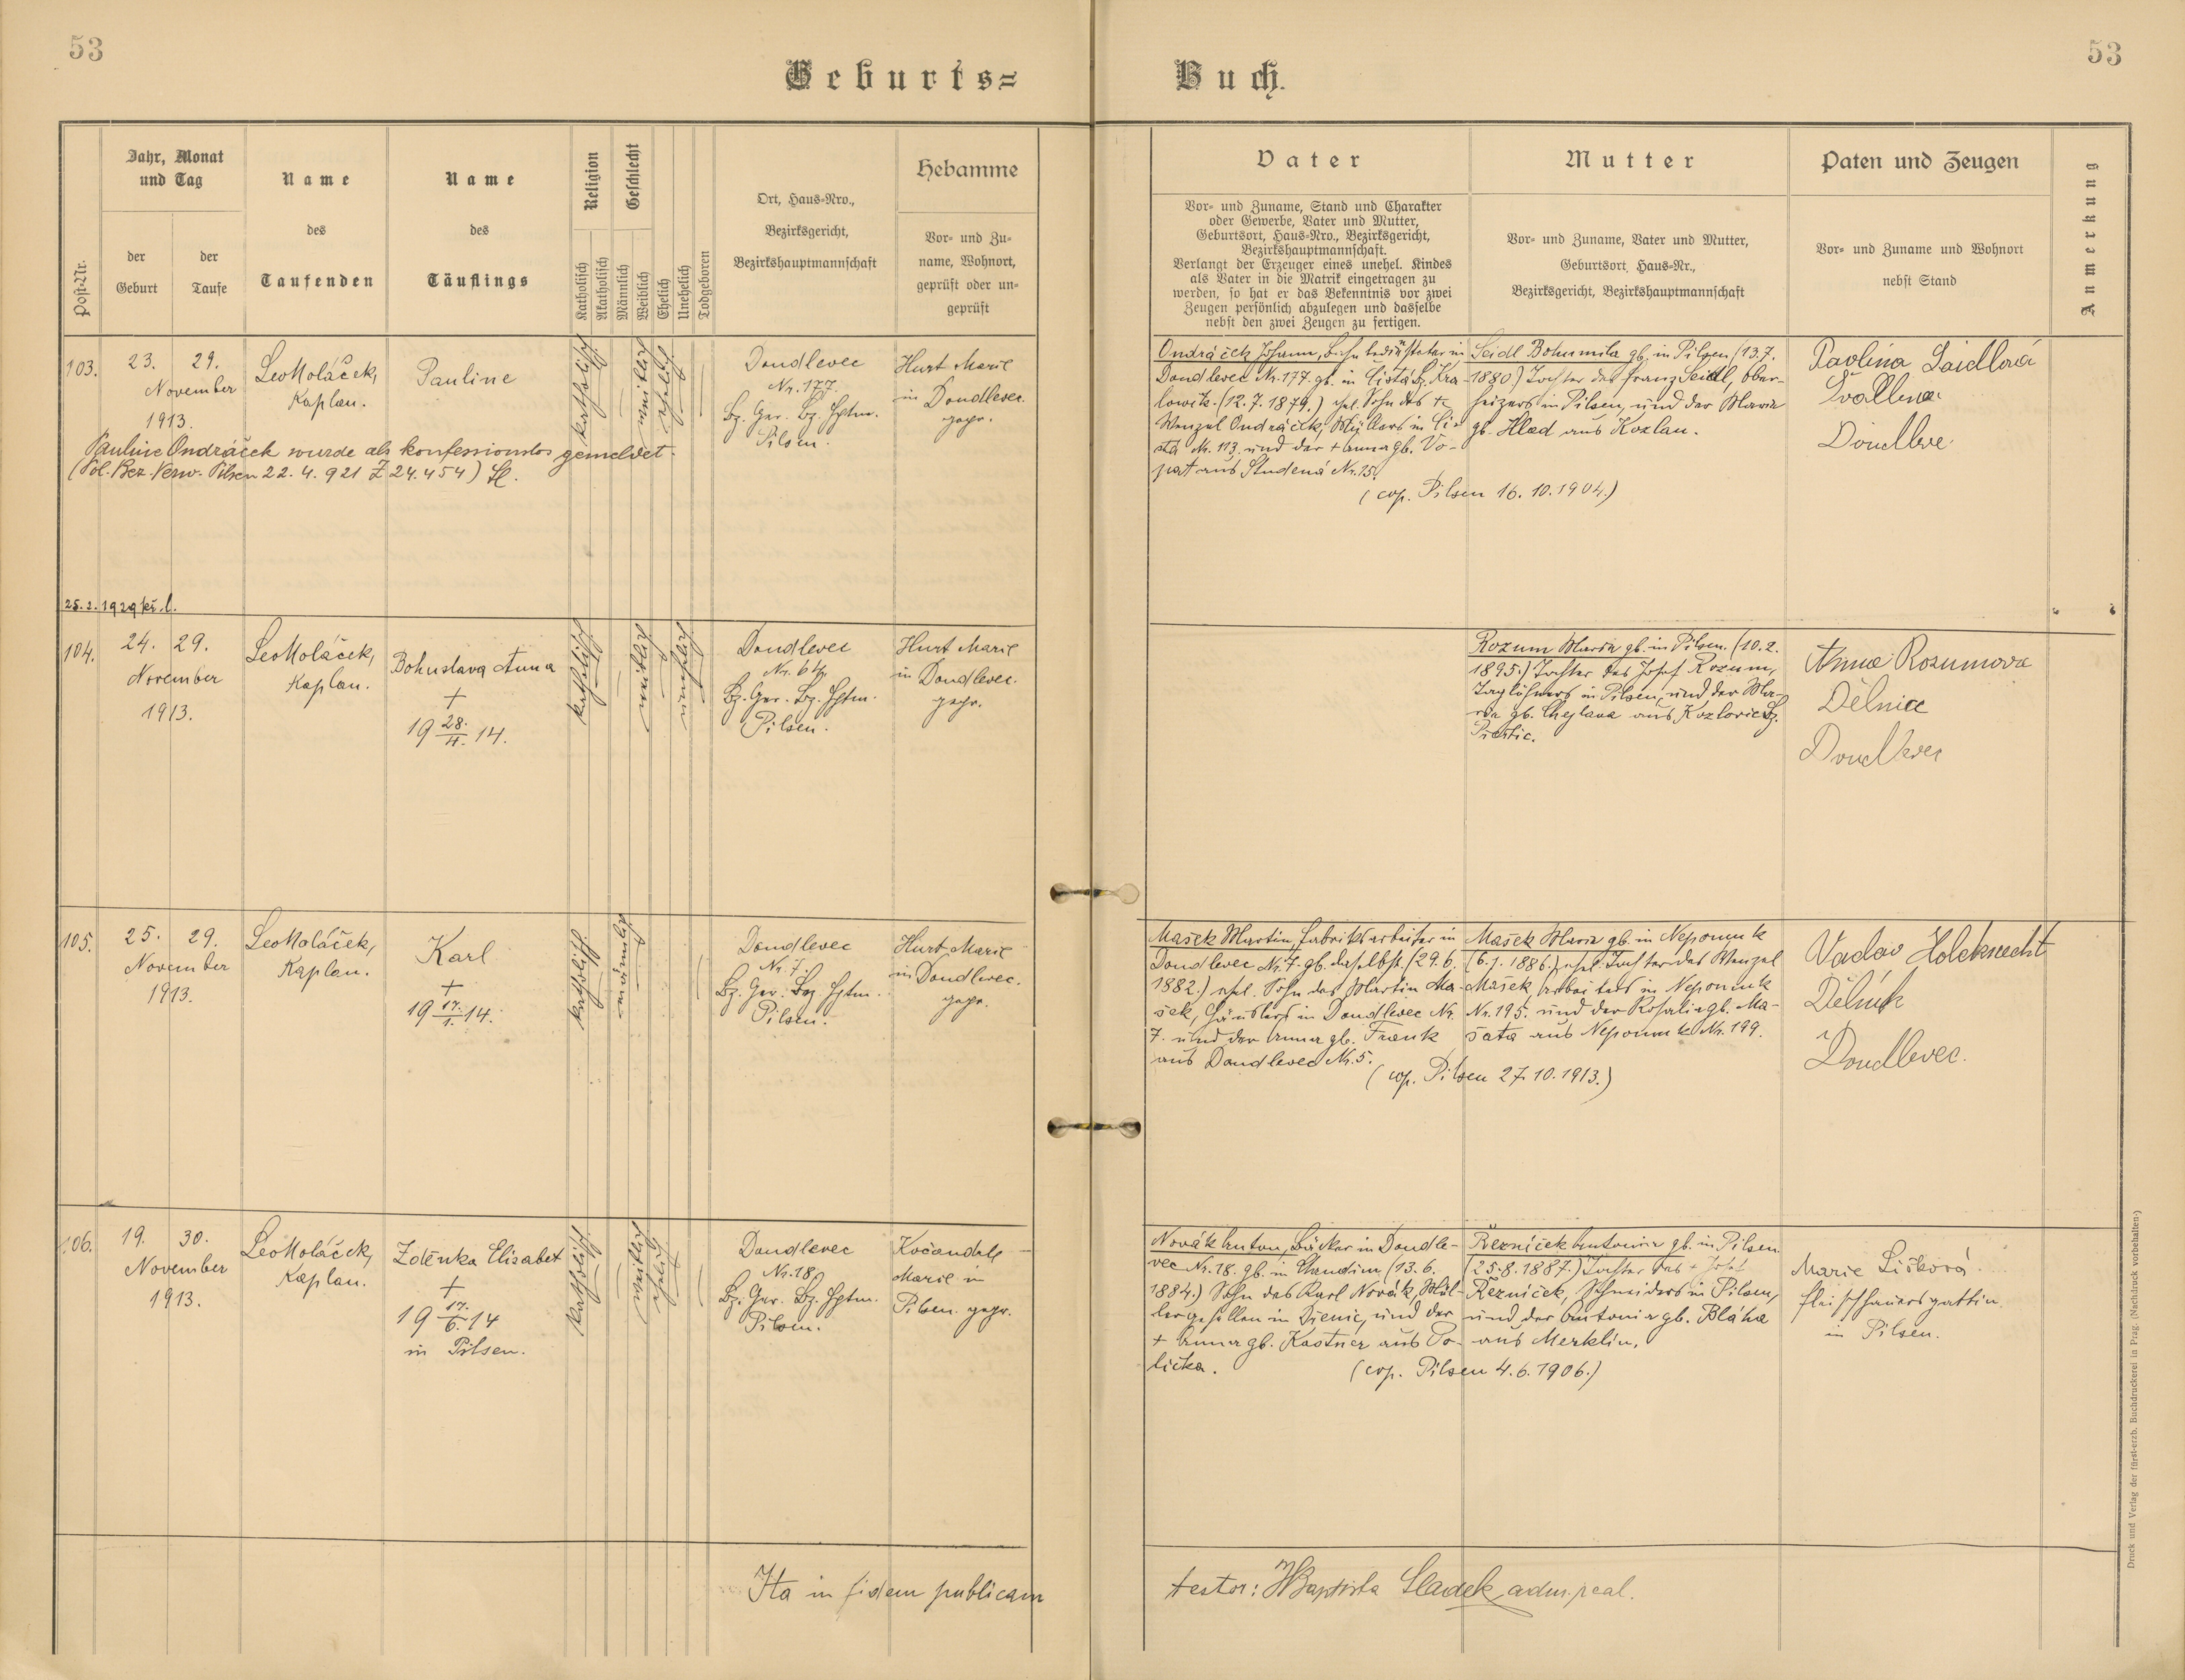 53
53
Geburts=
Buch.
Post-Nr.
Jahr, Monat
und Tag
der
Geburt
der
Taufe
Name
des
Taufenden
Name
des
Täuflings
Religion
Katholisch
Akatholisch
Geschlecht
Männlich
Weiblich
Ehelich
Unehelich
Todgeboren
Ort, Haus-Nro.,
Bezirksgericht,
Bezirkshauptmannschaft
Hebamme
Vor- und Zu-
name, Wohnort,
geprüft oder un-
geprüft
Vater
Vor- und Zuname, Stand und Charakter
oder Gewerbe, Vater und Mutter,
Geburtsort, Haus-Nro., Bezirksgericht,
Bezirkshauptmannschaft.
Verlangt der Erzeuger eines unehel. Kindes
als Vater in die Matrik eingetragen zu
werden, so hat er das Bekenntnis vor zwei
Zeugen persönlich abzulegen und dasselbe
nebst den zwei Zeugen zu fertigen.
Mutter
Vor- und Zuname, Vater und Mutter,
Geburtsort, Haus-Nr.,
Bezirksgericht, Bezirkshauptmannschaft
Paten und Zeugen
Vor- und Zuname und Wohnort
nebst Stand
Anmerkung
103.
23. 29.
November
1913.
Leo Koláček,
Kaplan.
Pauline
katholisch
weiblich
ehelich
Doudlevec
Nr. 177.
Bz. Ger. Bz. Hptm.
Pilsen.
Hurt Marie
in Doudlevec.
gepr.
Pauline Ondráček wurde als konfessionslos gemeldet.
(Pol. Bez. Verw. Pilsen 22. 4. 921 Z 24.454)
Ondráček Johann, Bahnbediensteter in
Doudlevec Nr. 177. gb. in Čistá Bz. Kra-
lowitz. (12. 7. 1879.) ehel. Sohn des +
Wenzel Ondráček, Müllers in Či-
stá Nr. 113. und der + Anna gb. Vo-
pat aus Studená Nr. 15.
(cop. Pilsen 16. 10. 1904.)
Seidl Bohumila gb. in Pilsen (13. 7.
1880.) Tochter des Franz Seidl, Ober-
heizers in Pilsen, und der Maria
gb. Hlad aus Kozlan.
Pavlina Saidlová
Doudlevec
25. 2. 1929
104.
24. 29.
November
1913.
Leo Koláček,
Kaplan.
Bohuslava Anna
+
19 28./4. 14.
katholisch
weiblich
unehelich
Doudlevec
Nr. 64
Bz. Ger. Bz. Hptm.
Pilsen.
Hurt Marie
in Doudlevec.
gepr.
Rozum Maria gb. in Pilsen. (10. 2.
1895.) Tochter des Josef Rozum,
Taglöhners in Pilsen, und der Ma-
ria gb. Chejlava aus Kozlovic Bz.
Anna Rozumova
Dělnice
Doudlevec
105.
25. 29.
November
1913.
Leo Koláček,
Kaplan.
Karl
+
19 17./1. 14.
katholisch
männlich
Doudlevec
Nr. 7.
Bz. Ger. Bz. Hptm.
Pilsen.
Hurt Marie
in Doudlevec.
gepr.
Mašek Martin, Fabriksarbeiter in
Doudlevec Nr. 7. gb. daselbst. (29. 6.
1882.) ehel. Sohn des Martin Ma-
šek, Häuslers in Doudlevec Nr.
7. und der Anna gb. Frank
aus Doudlevec Nr. 5.
(cop. Pilsen 27. 10. 1913.)
Mašek Maria gb. in Nepomuk
(6. 1. 1886.) ehel. Tochter des Wenzel
Mašek, Arbeiters in Nepomuk
Nr. 195. und der Rosalia gb. Ma-
šata aus Nepomuk Nr. 199.
Vaclav Holcknecht
Dělník
Doudlevec.
106.
19. 30.
November
1913.
Leo Koláček,
Kaplan.
Zdenka Elisabet
+
19 17./6. 14
in Pilsen.
katholisch
weiblich
ehelich
Doudlevec
Nr. 18
Bz. Ger. Bz. Hptm.
Pilsen.
Kočandrle
Marie in
Pilsen. gepr.
Novák Anton, Bäcker in Doudle-
vec Nr. 18. gb. in Chrudim (13. 6.
1884.) Sohn des Karl Novák, Mül-
lergesellen in und der
+ Anna gb. Kastner aus Po-
lička.
(cop. Pilsen 4. 6. 1906.)
Řezníček Antonia gb. in Pilsen
(25. 8. 1887.) Tochter des + Josef
Řezníček, Schneiders in Pilsen,
und der Antonia gb. Bláha
aus Merklin.
Marie Lišková
Fleischhauersgattin
in Pilsen.
Ita in fidem publicam
testor: JBaptista Sladek adm. paal.
Druck und Verlag der fürst-erzb. Buchdruckerei in Prag. (Nachdruck vorbehalten.)